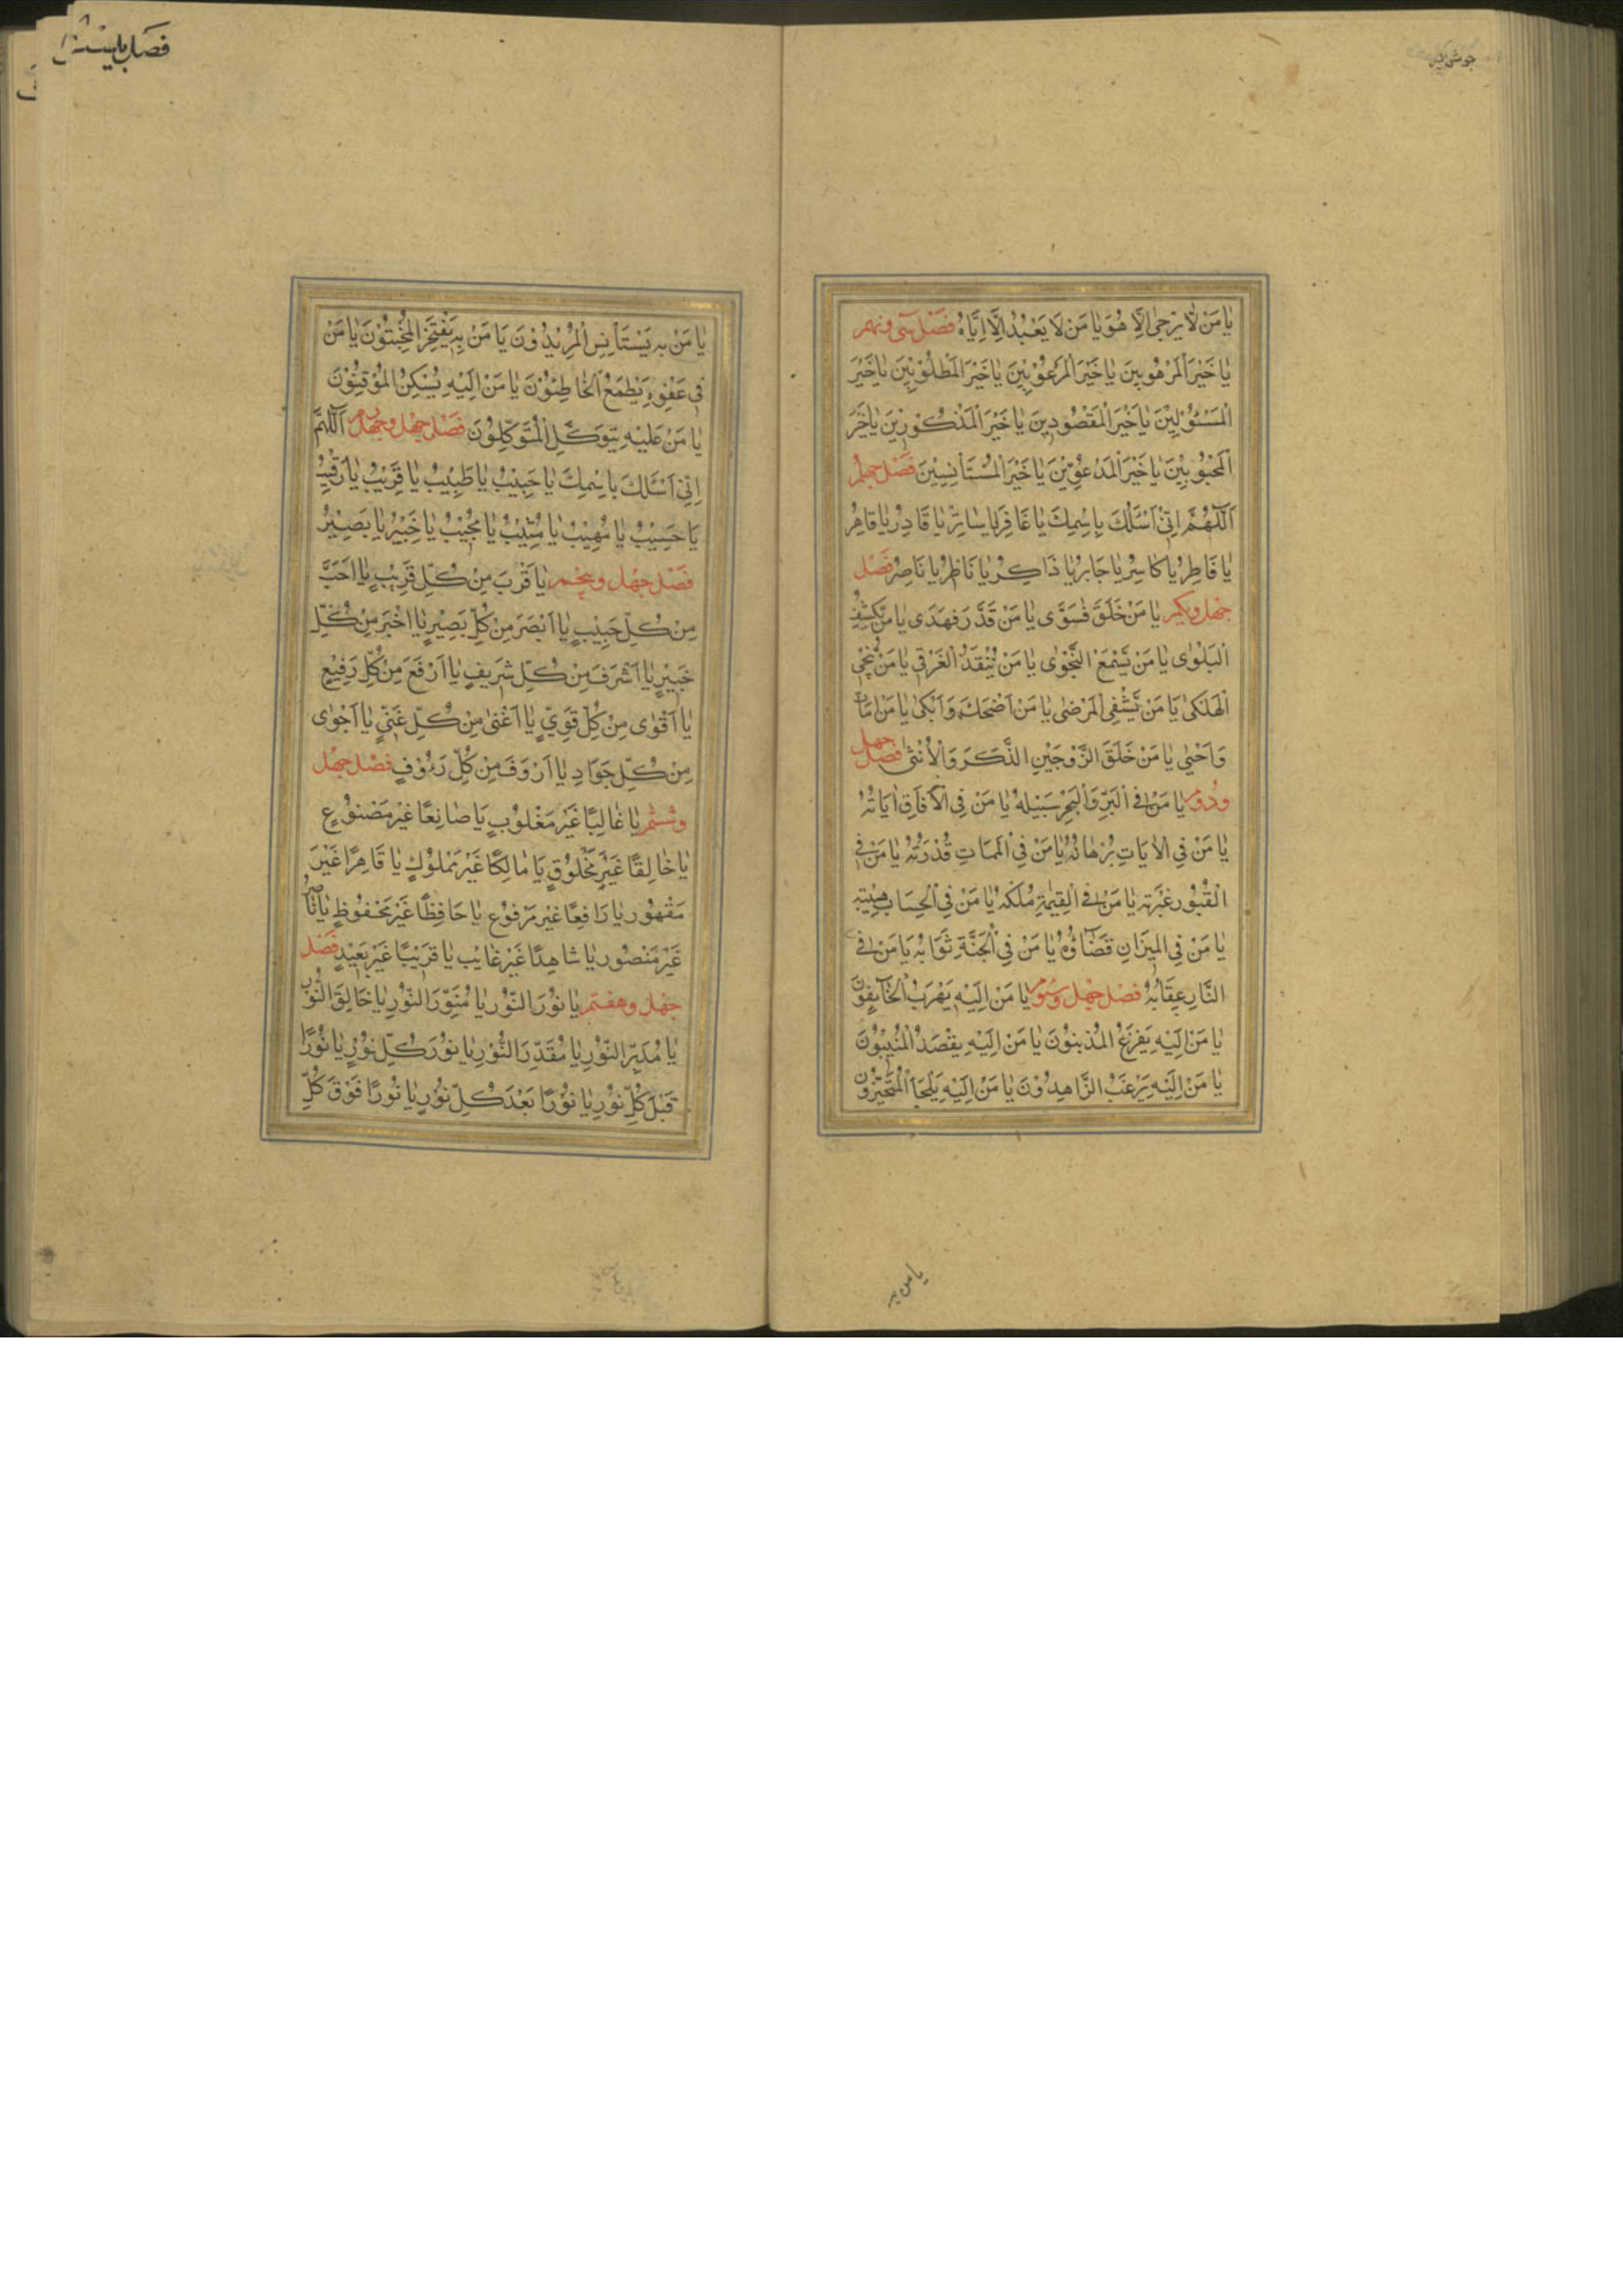 جوشن کبیر
يٰا مَنْ لٰا يُرْجٰى اِلَّا هُوَ يٰا مَنْ لَا يُعْبَدُ اِلَّا اِيَّاهُ فَصْل سَى و نهم
يٰا خَيْرَ الْمَرْهُوبِينَ يٰا خَيْرَ الْمَرْغُوْبِيْنَ يٰا خَيْرَ الْمَطْلُوْبِيْنَ يٰا خَيْرَ
الْمَسْئُوْلِيْنَ يٰا خَيْرَ الْمَقْصُودِينَ يٰا خَيْرَ الْمَذْكُوْرِيْنَ يٰا خَيْرَ
الْمَحْبُوْبِيْنَ يٰا خَيْرَ الْمَدْعُوِّيْنَ يٰا خَيْرَ الْمُسْتَأْنِسِيْنَ فَصْل چهلم
اَللّٰهُمَّ اِنِّىْ اَسْئَلُكَ بِاِسْمِكَ يٰا غَافِرُ يٰا سٰاتِرُ يٰا قَادِرُ يٰا قَاهِرُ
يٰا فَاطِرُ يٰا كٰاسِرُ يٰا جَابِرُ يٰا ذَاكِرُ يٰا نَاظِرُ يٰا نَاصِرُ فَصْل
چهل و يكم يٰا مَنْ خَلَقَ فَسَوّٰى يٰا مَنْ قَدَّرَ فَهَدَى يٰا مَنْ يَكْشِفُ
الْبَلْوٰى يٰا مَنْ يَسْمَعُ النَّجْوٰى يٰا مَنْ يُنْقِذُ الْغَرْقٰى يٰا مَنْ يُنْجِى
الْهَلْكىٰ يٰا مَنْ يَشْفِى الْمَرْضٰى يٰا مَنْ اَضْحَكَ وَ اَبْكىٰ يٰا مَنْ اَمَاتَ
وَ اَحْيٰى يٰا مَنْ خَلَقَ الزَّوْجَيْنِ الذَّكَرَ وَ الْاُنْثٰى فصل چهل
و دوم يٰا مَنْ فِى الْبَرِّ وَ الْبَحْرِ سَبِيْلُهُ يٰا مَنْ فِى الْاٰفَاقِ اٰيَاتُهُ
يٰا مَنْ فِى الْاٰيَاتِ بُرْهَانُهُ يٰا مَنْ فِى الْمَمَاتِ قُدْرَتُهُ يٰا مَنْ فِى
الْقُبُوْرِ عِبْرَتُهُ يٰا مَنْ فِى الْقِيٰمَةِ مُلْكُهُ يٰا مَنْ فِى الْحِسَابِ هَيْبَتُهُ
يٰا مَنْ فِى الْمِيْزَانِ قَضَاؤُهُ يٰا مَنْ فِى الْجَنَّةِ ثَوَابُهُ يٰا مَنْ فِى
النَّارِ عِقَابُهُ فصل چهل و سوم يٰا مَنْ اِلَيْهِ يَهْرَبُ الْخَائِفُوْنَ
يٰا مَنْ اِلَيْهِ يَفْزَعُ الْمُذْنِبُوْنَ يٰا مَنْ اِلَيْهِ يَقْصَدُ الْمُنِيْبُوْنَ
يٰا مَنْ اِلَيْهِ يَرْغَبُ الزَّاهِدُوْنَ يٰا مَنْ اِلَيْهِ يَلْجَأُ الْمُتَحَيِّرُوْنَ
يا من به
يٰا مَنْ بِهِ يَسْتَأْنِسُ الْمُرِيْدُوْنَ يٰا مَنْ بِهِ يَفْتَخِرُ الْمُخْبِتُوْنَ يٰا مَنْ
فِى عَفْوِهِ يَطْمَعُ الْخَاطِئُوْنَ يٰا مَنْ اِلَيْهِ يَسْكُنُ الْمُوْقِنُوْنَ
يٰا مَنْ عَلَيْهِ يَتَوَكَّلُ الْمُتَوَكِّلُوْنَ فَصْل چهل و چهارم اَللّٰهُمَّ
اِنِّى اَسْئَلُكَ بِاِسْمِكَ يٰا حَبِيْبُ يٰا طَبِيْبُ يٰا قَرِيْبُ يٰا رَقِيْبُ
يٰا حَسِيْبُ يٰا مُهِيْبُ يٰا مُثِيْبُ يٰا مُجِيْبُ يٰا خَبِيْرُ يٰا بَصِيْرُ
فَصْل چهل و پنجم يٰا اَقْرَبَ مِنْ كُلِّ قَرِيْبٍ يٰا اَحَبَّ
مِنْ كُلِّ حَبِيْبٍ يٰا اَبْصَرَ مِنْ كُلِّ بَصِيْرٍ يٰا اَخْبَرَ مِنْ كُلِّ
خَبِيْرٍ يٰا اَشْرَفَ مِنْ كُلِّ شَرِيفٍ يٰا اَرْفَعَ مِنْ كُلِّ رَفِيْعٍ
يٰا اَقْوٰى مِنْ كُلِّ قَوِيٍّ يٰا اَغْنٰى مِنْ كُلِّ غَنِيٍّ يٰا اَجْوٰى
مِنْ كُلِّ جَوَادٍ يٰا اَرْوَفَ مِنْ كُلِّ رَؤُوْفٍ فصل چهل
و ششم يٰا غٰالِبًا غَيْرَ مَغْلُوْبٍ يٰا صَانِعًا غَيْرَ مَصْنُوْعٍ
يٰا خَالِقًا غَيْرَ مَخْلُوْقٍ يٰا مٰالِكًا غَيْرَ مَمْلُوْكٍ يٰا قَاهِرًا غَيْرَ
مَقْهُوْرٍ يٰا رَافِعًا غَيْرَ مَرْفُوْعٍ يٰا حَافِظًا غَيْرَ مَحْفُوْظٍ يٰا نَاصِرًا
غَيْرَ مَنْصُوْرٍ يٰا شَاهِدًا غَيْرَ غَايِبٍ يٰا قَرِيْبًا غَيْرَ بَعِيْدٍ فَصْل
چهل و هفتم يٰا نُوْرَ النُّوْرِ يٰا مُنَوِّرَ النُّوْرِ يٰا خَالِقَ النُّوْرِ
يٰا مُدَبِّرَ النُّوْرِ يٰا مُقَدِّرَ النُّوْرِ يٰا نُوْرَ كُلِّ نُوْرٍ يٰا نُوْرًا
قَبْلَ كُلِّ نُوْرٍ يٰا نُوْرًا بَعْدَ كُلِّ نُوْرٍ يٰا نُوْرًا فَوْقَ كُلِّ